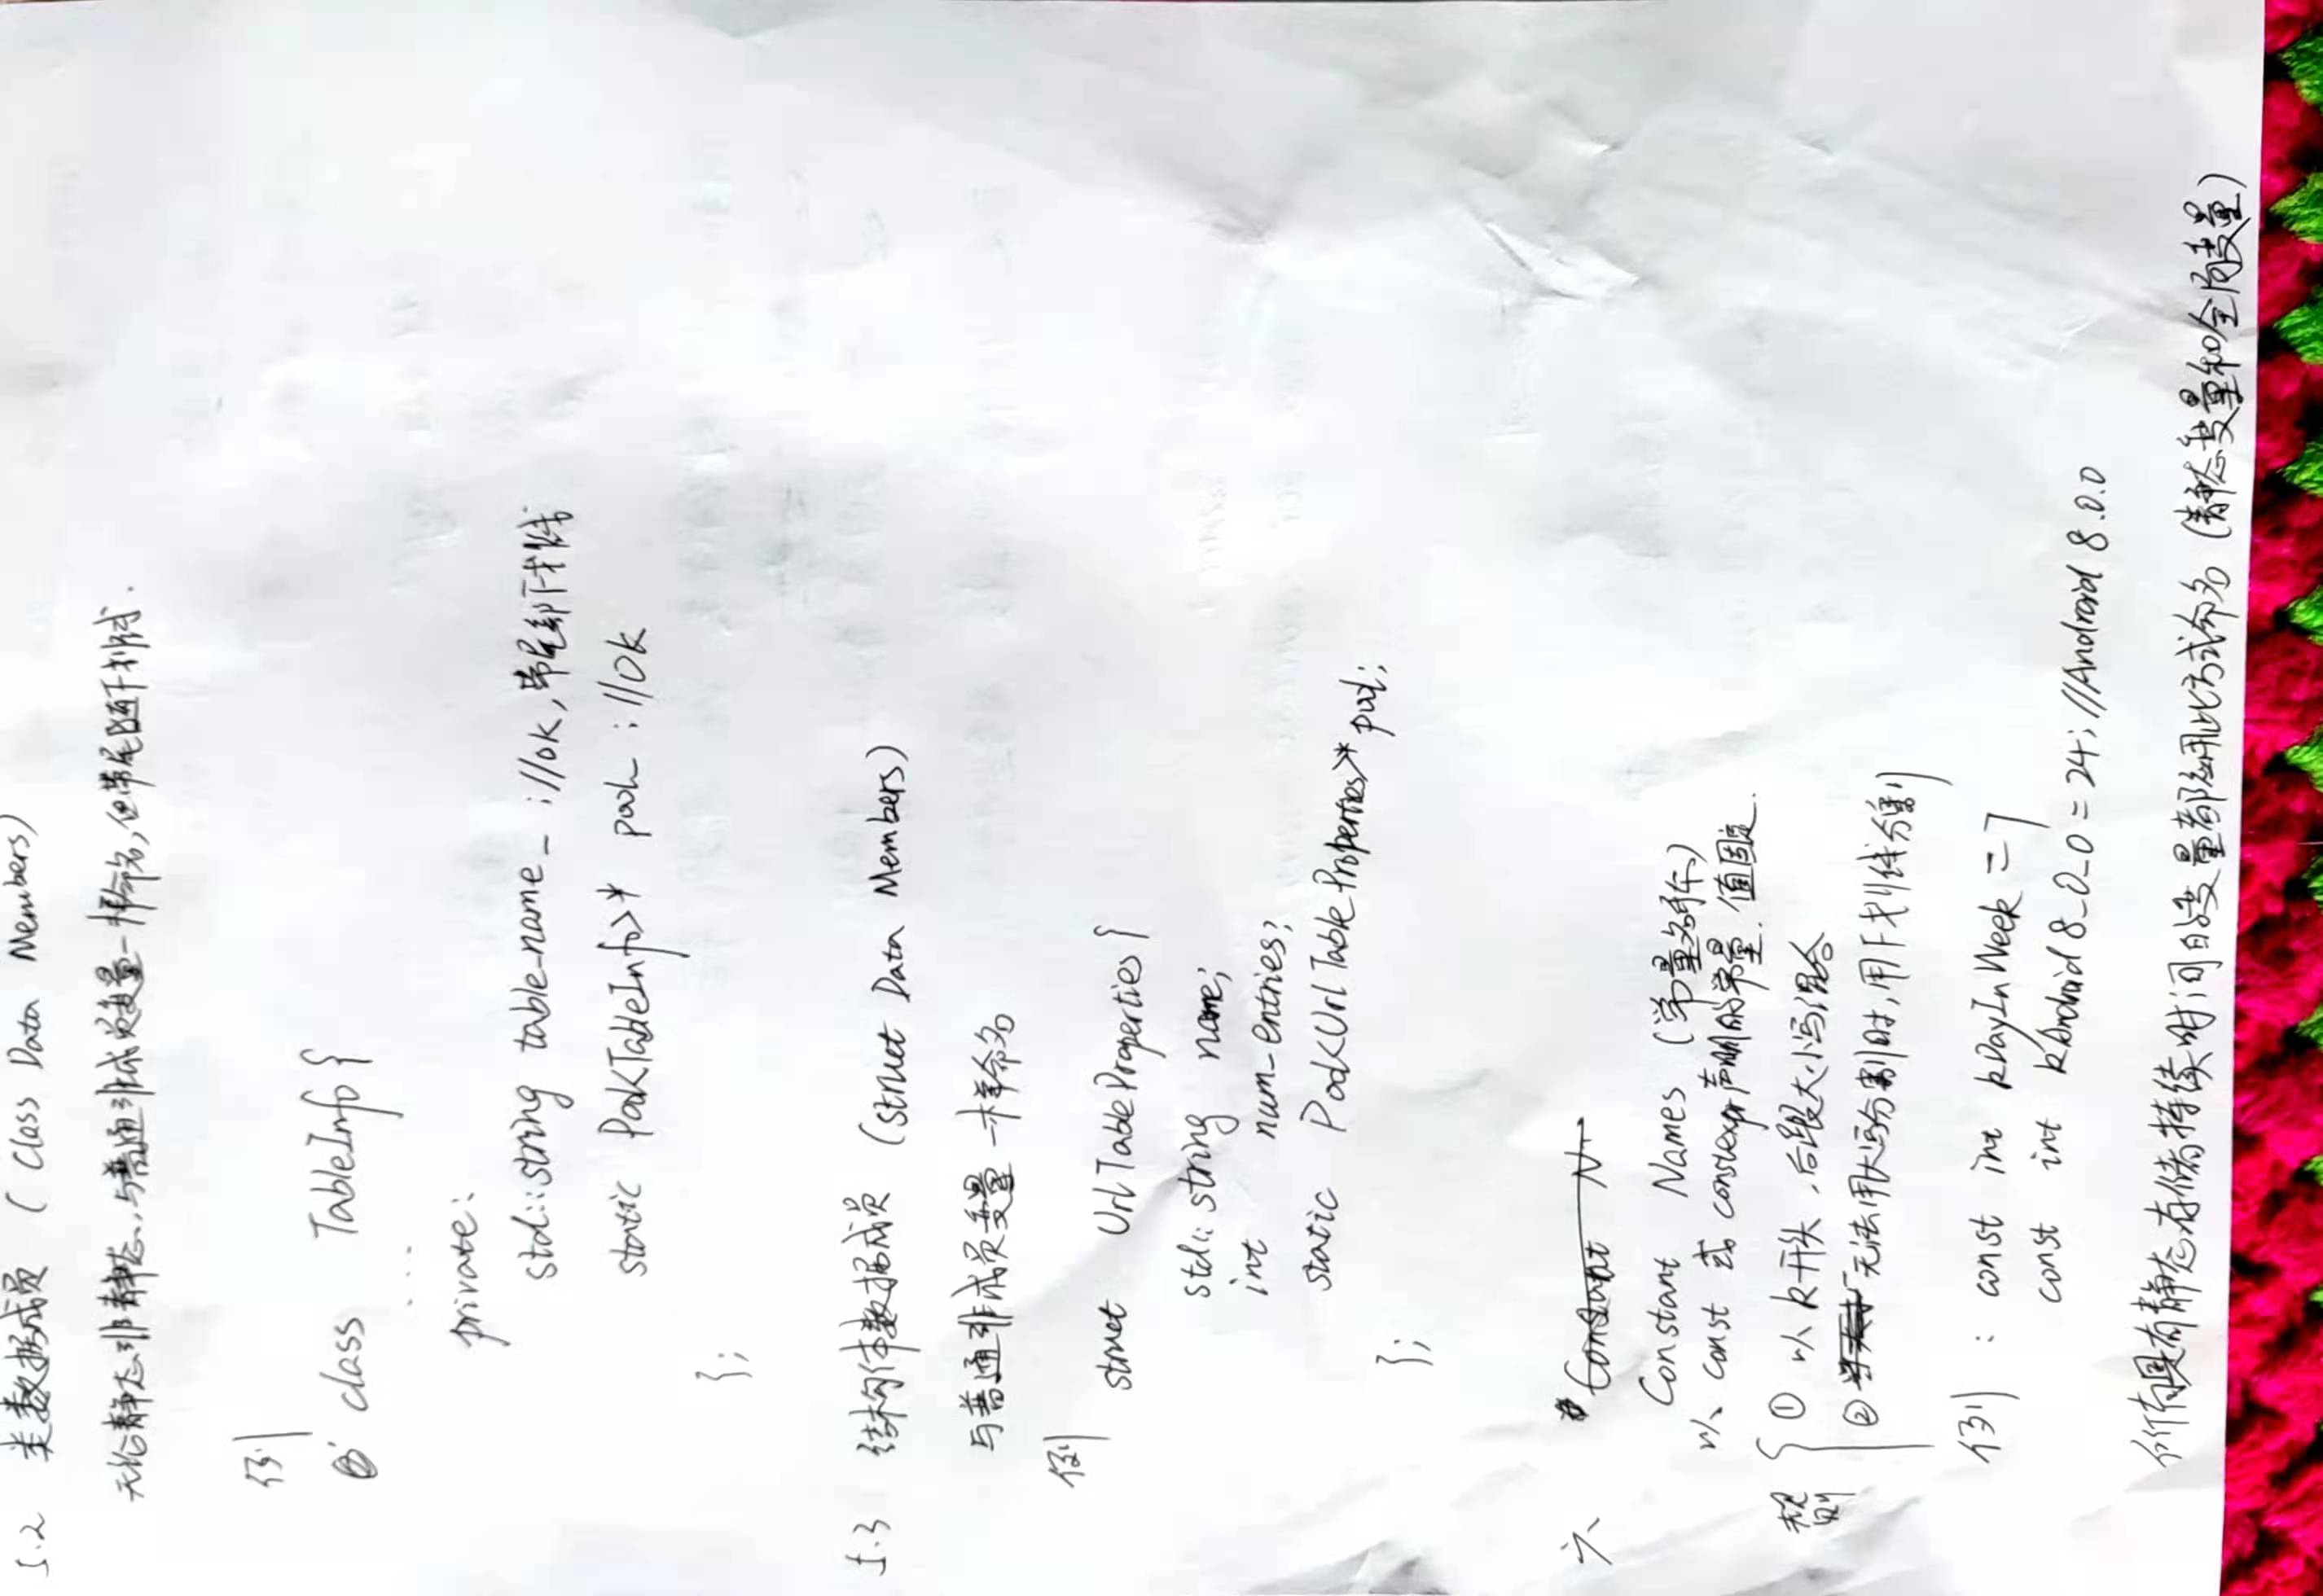 5.2 类数据成员 (Class Data Members)
无论静态非静态,与普通非成员变量一样命名,但带尾随下划线.
例
class TableInfo {
....
private:
std::string table_name_ ; //ok,带尾部下划线
static PookTableInfo>* pool_ ; //ok
};
5.3 结构体数据成员 (struct Data Members)
与普通非成员变量一样命名
例
struct UrlTableProperties {
std::string name;
int num_entries;
static PookUrlTableProperties>* pool;
};
Constant N
六、 Constant Names (常量名称)
以 const 或 constexpr 声明的常量.值固定.
规则 { ① 以 k 开头,后跟大小写混合
② 无法用大写分割时,用下划线分割
例 : const int kDayInWeek = 7
const int kAndroid8_0_0 = 24; //Android 8.0.0
所有具有静态存储持续时间的变量都应用此方式命名 (静态变量和全局变量)